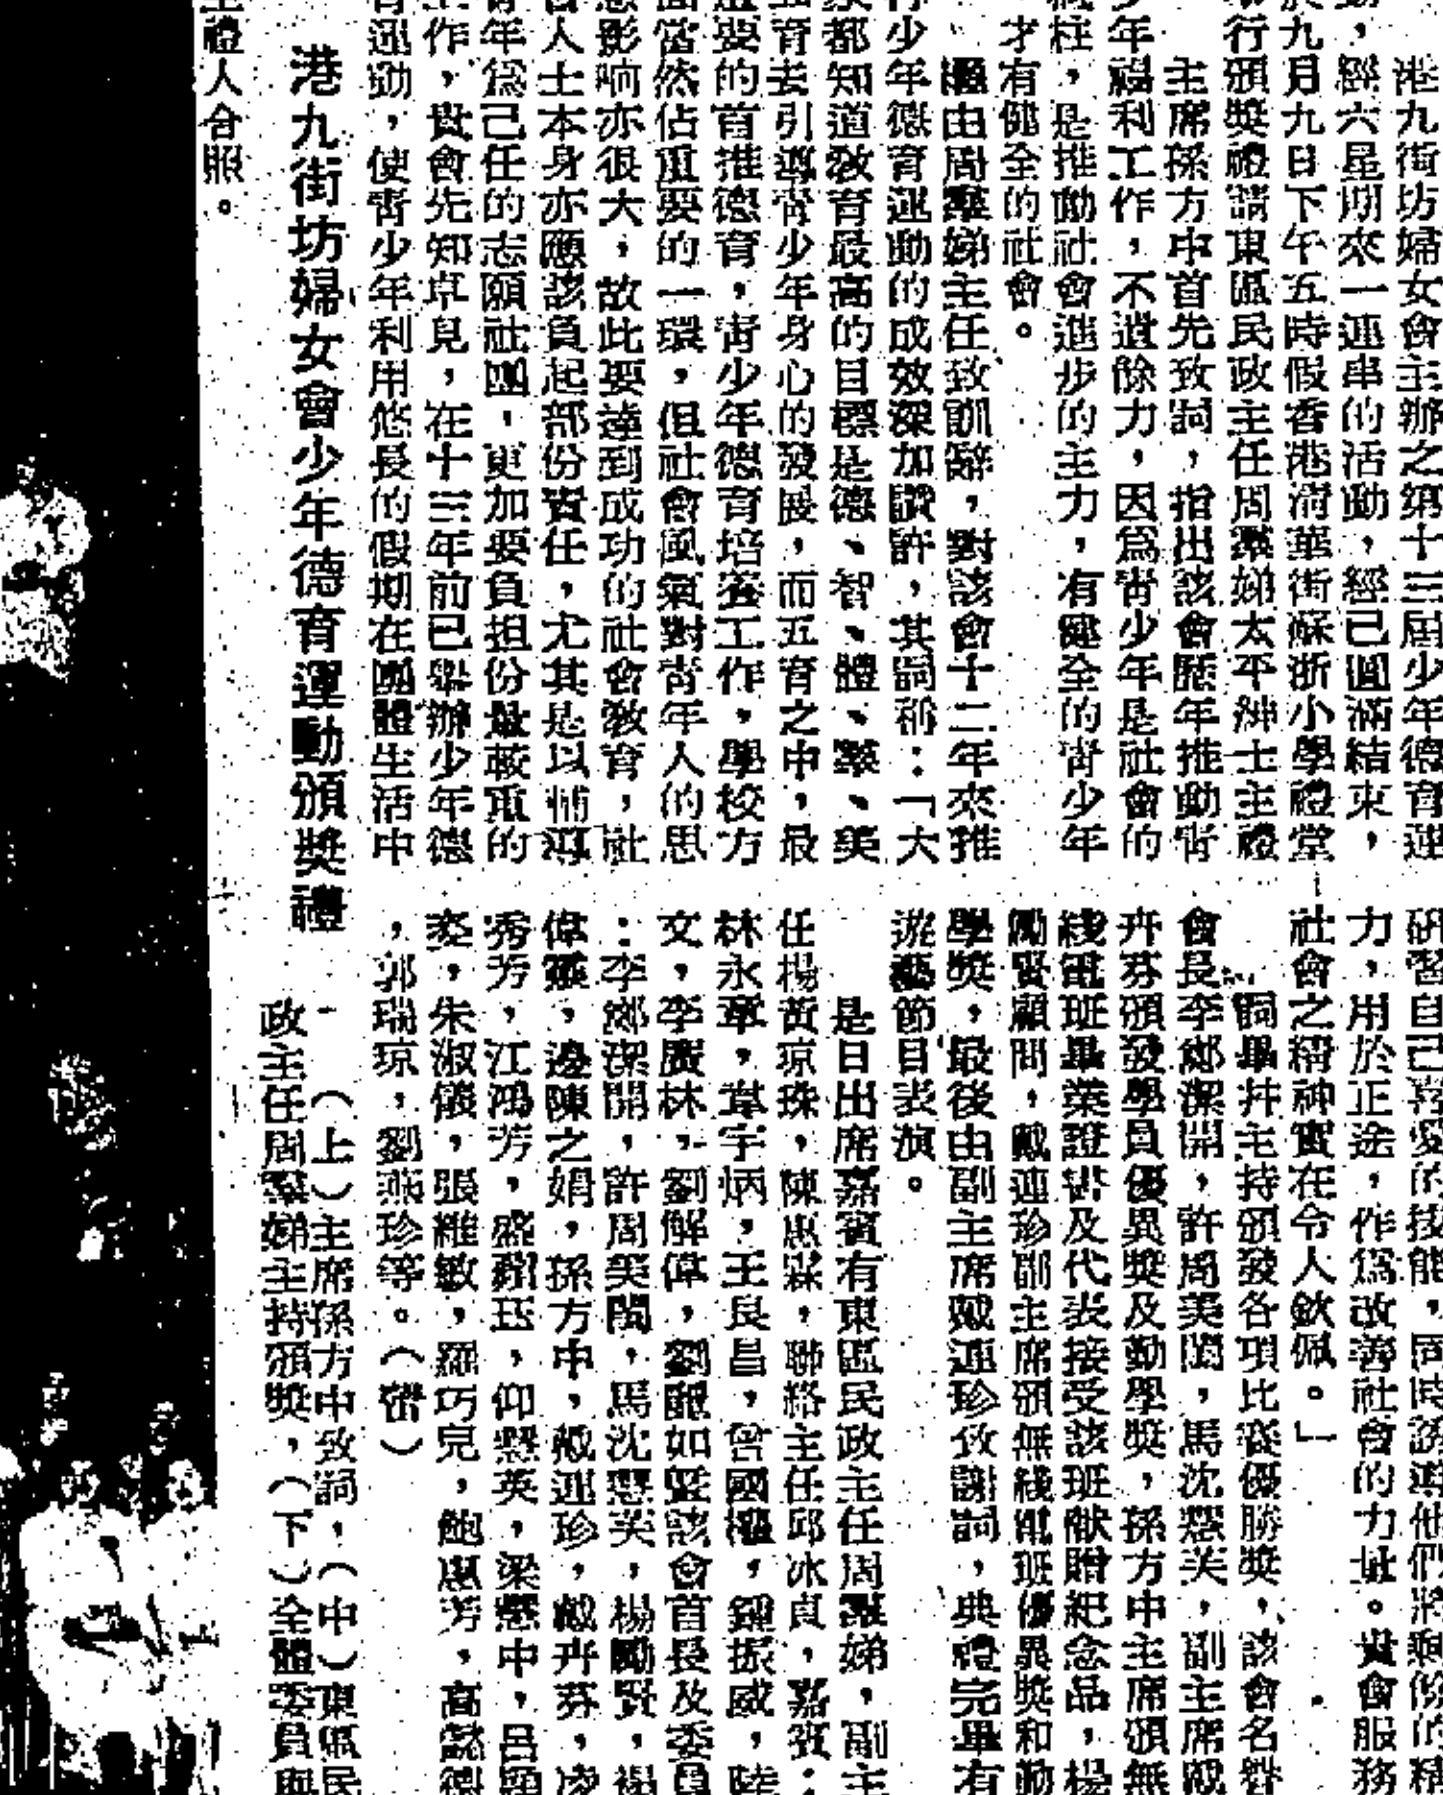 港九街坊婦女會少年德育運動頒獎禮
港九街坊婦女會主辦之第十三屆少年德育運
動，經六星期來一連串的活動，經已圓滿結束，
於九月九日下午五時假香港清華街蘇浙小學禮堂
舉行頒獎禮請東區民政主任周群娣太平紳士主禮
主席孫方中首先致詞，指出該會歷年推動青
少年福利工作，不遺餘力，因爲青少年是社會的
柱，是推動社會進步的主力，有健全的青少年
才有健全的社會。
繼由周羣娣主任致訓辭，對該會十二年來推
行少年德育運動的成效深加讚許，其詞稱：「大
家都知道敎育最高的目標是德、智、體、羣、美
五育去引導青少年身心的發展，而五育之中，最
重要的首推德育，青少年德育培養工作，學校方
面當然佔重要的一環，但社會風氣對青年人的思
想影响亦很大，故此要達到成功的社會敎育，社
會人士本身亦應該負起部份責任，尤其是以輔導
青年爲己任的志願社團，更加要負担份量較重的
工作，貴會先知卓見，在十三年前已舉辦少年德
育運動，使青少年利用悠長的假期在團體生活中
研習自己喜愛的技能，同時誘導他們將剩餘的精
力，用於正途，作爲改善社會的力量。貴會服務
社會之精神實在令人欽佩。」
詞畢幷主持頒發各項比賽優勝獎，該會名譽
會長李鄭潔開，許周美蘭，馬沈慧芙，副主席戴
卉芬頒發學員優異獎及勤學獎，孫方中主席頒無
綫電班畢業證書及代表接受該班献贈紀念品，楊
勵賢顧問，戴連珍副主席頒無綫電班優異獎和勤
學獎，最後由副主席戴連珍致謝詞，典禮完畢有
遊藝節目表演。
是日出席嘉賓有東區民政主任周羣娣，副主
任楊黃琼珠，陳惠霖，聯絡主任邱冰貞，嘉賓：
林永章，韋宇炳，王良昌，曾國權，鍾振威，陸
文，李廣林，劉解偉，劉龍如暨該會首長及委員
：李鄭潔開，許周美蘭，馬沈慧芙，楊勵賢，楊
偉羅，邊陳之娟，孫方中，戴連珍，戴卉芬，凌
秀芳，江鴻芳，盛翔珏，仰慧英，梁慧中，呂
奕，朱淑儀，張維敏，羅巧兒，鮑惠芳，高懿德
，郭瑞琼，劉燕珍等。（榮）
（上）主席係方中致詞，（中）東區民
政主任周羣娣主持頒獎，（下）全體委員與
主禮人合照。